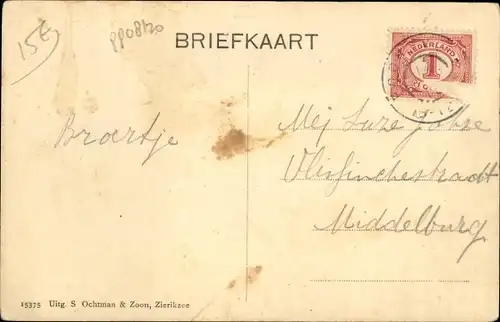 15E
BRIEFKAART
NEDERLAND
1
Broertje
Mej Suze
Vlissinchestraadt
Middelburg
15375 Uitg. S Ochtman & Zoon, Zierikzee